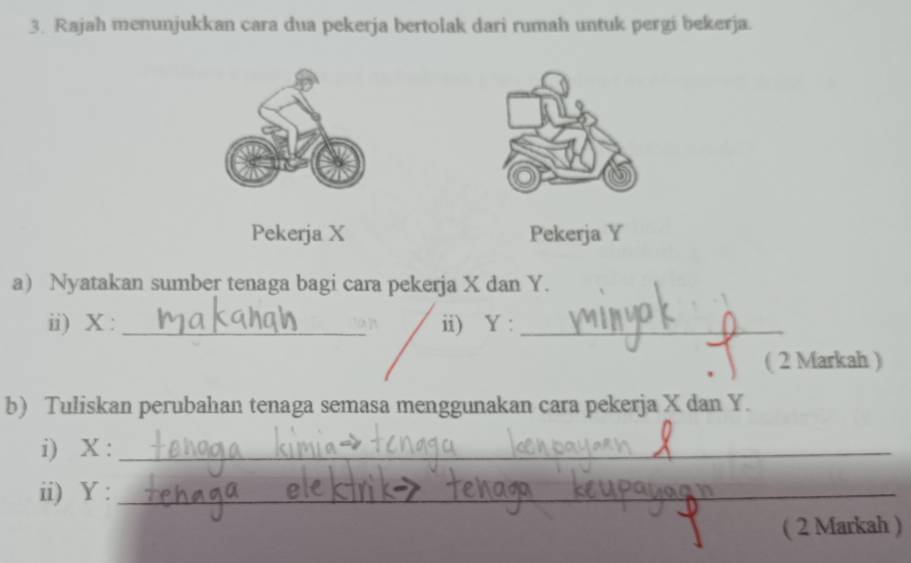 3. Rajah menunjukkan cara dua pekerja bertolak dari rumah untuk pergi bekerja.
Pekerja X Pekerja Y
a) Nyatakan sumber tenaga bagi cara pekerja X dan Y.
ii) X : makanan ii) Y : minyak
( 2 Markah )
b) Tuliskan perubahan tenaga semasa menggunakan cara pekerja X dan Y.
i) X : tenaga kimia → tenaga
ii) Y : tenaga elektrik → tenaga keupayaan
( 2 Markah )